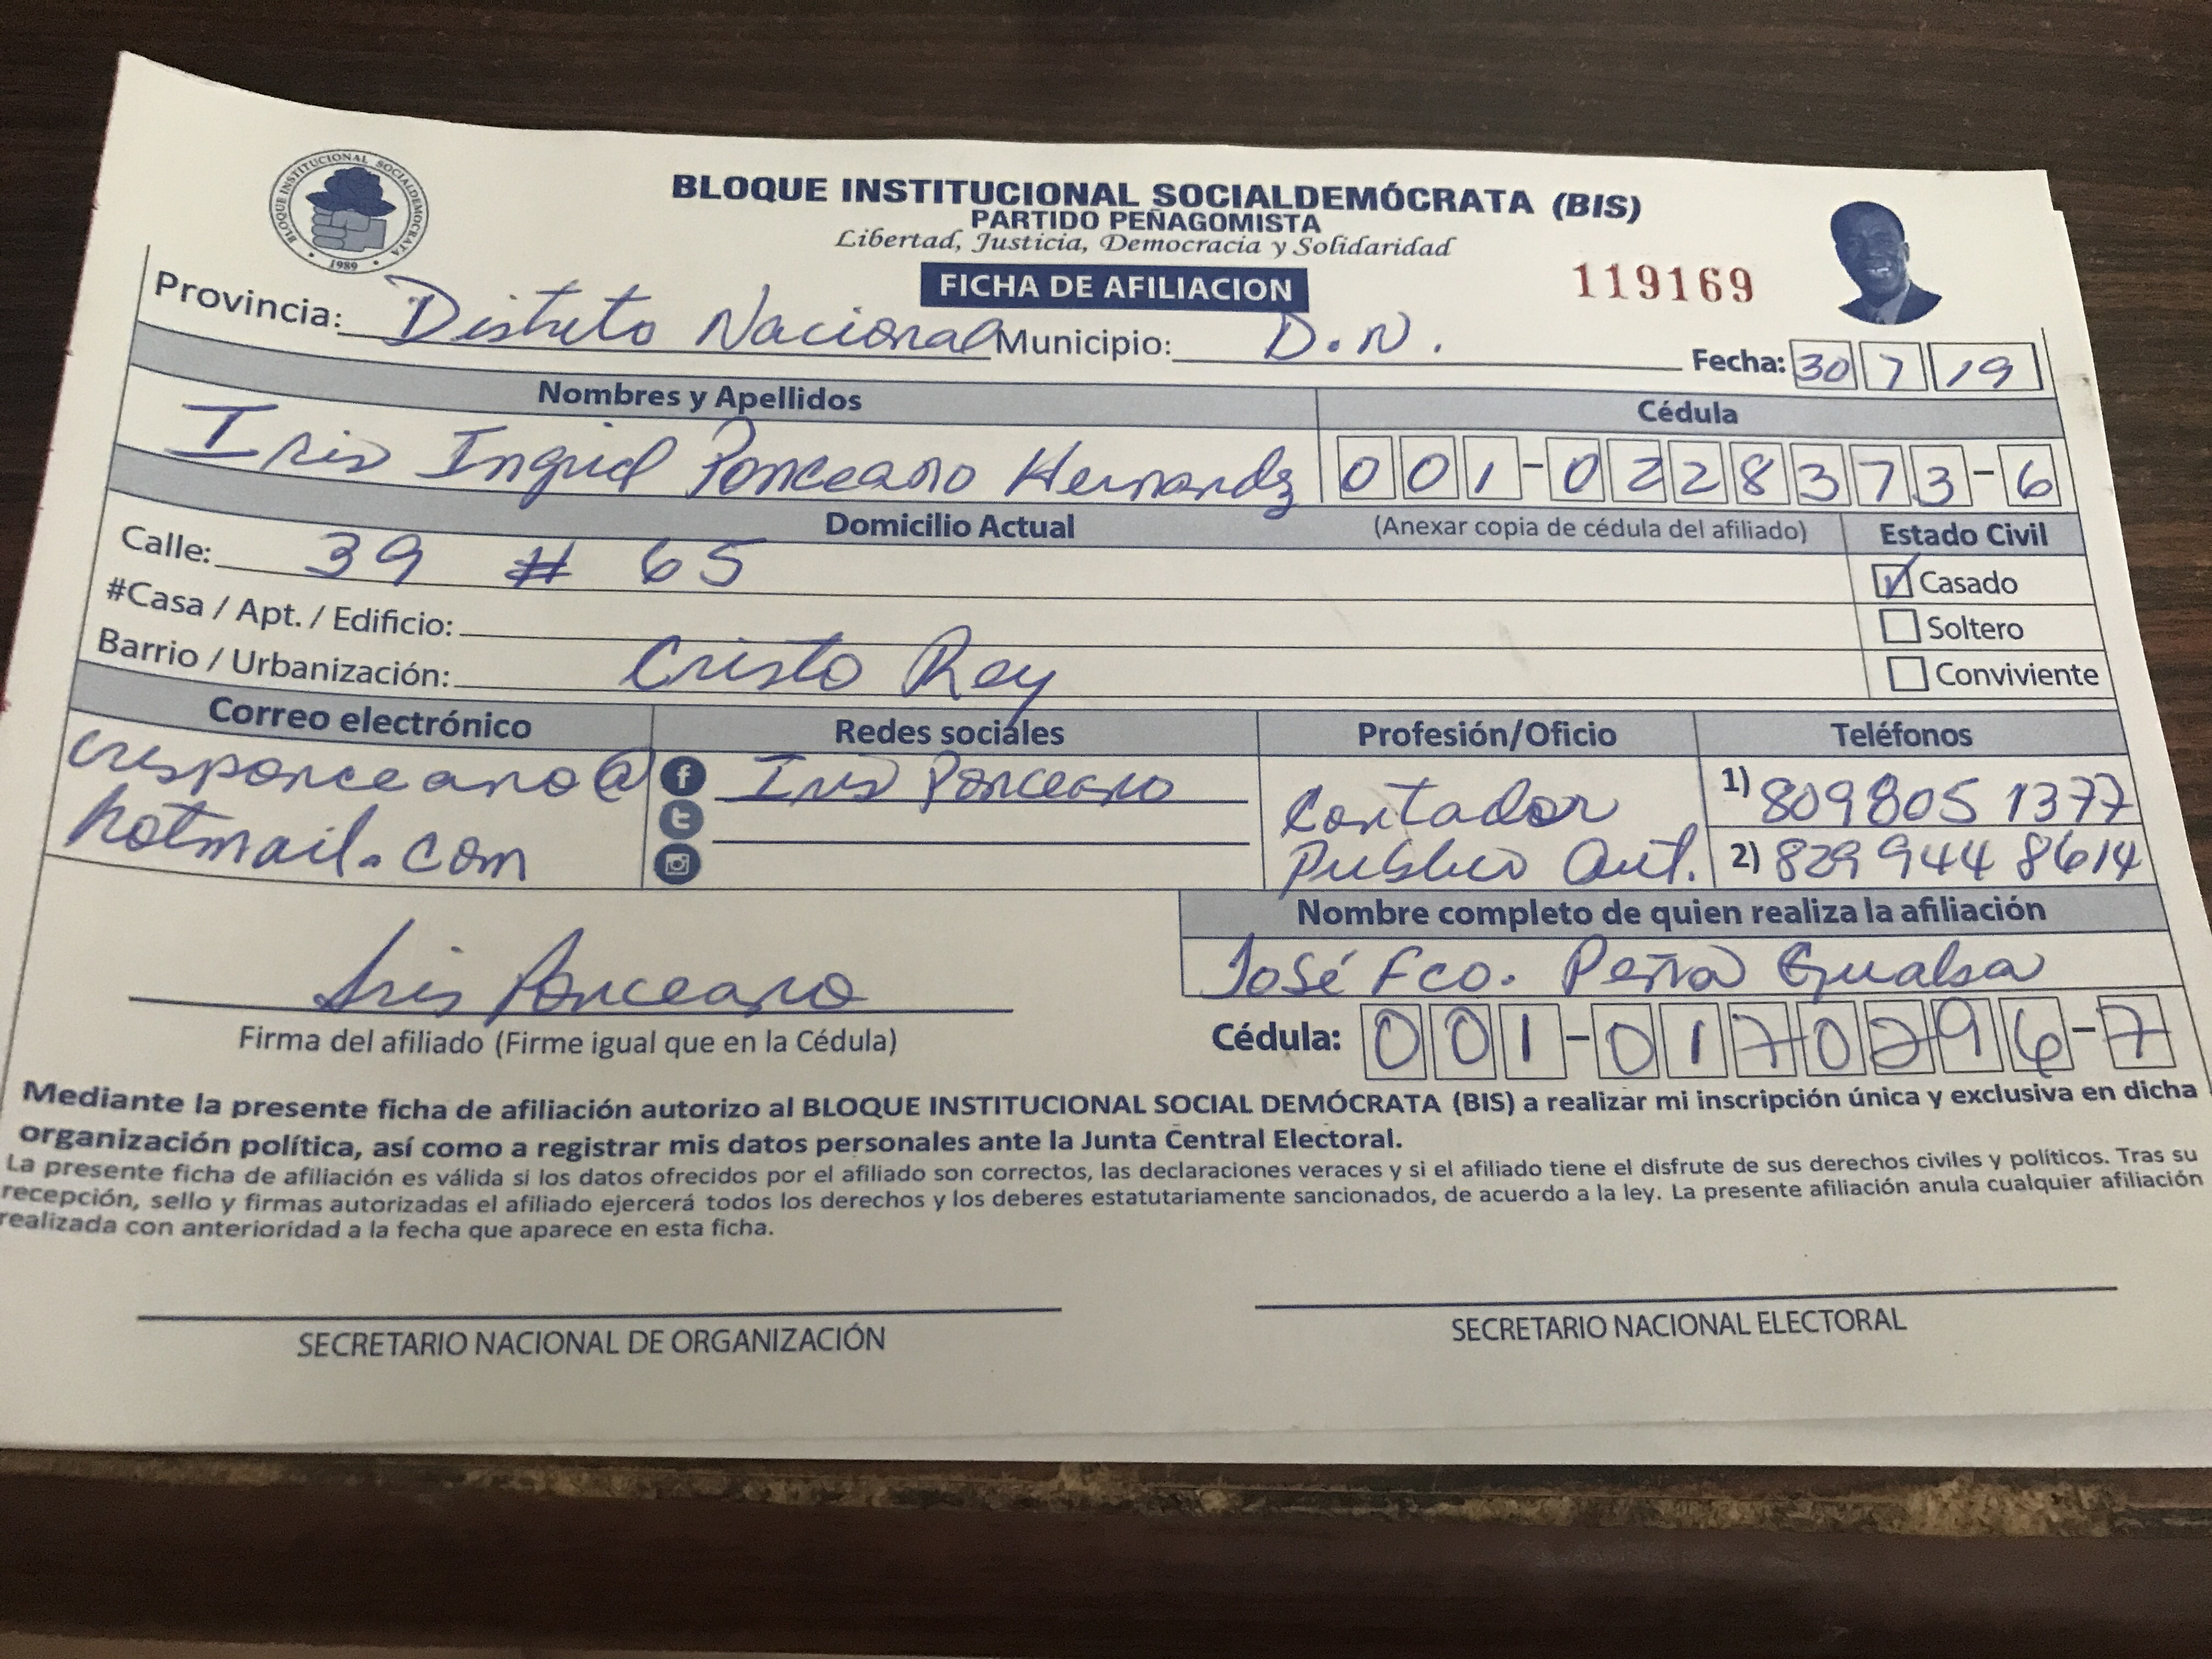 BLOQUE INSTITUCIONAL SOCIALDEMOCRATA
1989
BLOQUE INSTITUCIONAL SOCIALDEMÓCRATA (BIS)
PARTIDO PEÑAGOMISTA
Libertad, Justicia, Democracia y Solidaridad
FICHA DE AFILIACION
119169
Provincia: Distrito Nacional Municipio: D.N. Fecha: 30 7 19
Nombres y Apellidos Cédula
Iris Ingrid Ponceano Hernandz 001-0228373-6
Domicilio Actual (Anexar copia de cédula del afiliado) Estado Civil
Calle: 39 # 65 Casado
#Casa / Apt. / Edificio: Soltero
Barrio / Urbanización: Cristo Rey Conviviente
Correo electrónico Redes sociales Profesión/Oficio Teléfonos
Iris Ponceano Contador 1) 809 805 1377
hotmail.com Publico Aut. 2) 829 944 8614
Nombre completo de quien realiza la afiliación
José Fco. Peña
Iris Ponceano
Firma del afiliado (Firme igual que en la Cédula) Cédula: 001-0170296-7
Mediante la presente ficha de afiliación autorizo al BLOQUE INSTITUCIONAL SOCIAL DEMÓCRATA (BIS) a realizar mi inscripción única y exclusiva en dicha
organización política, así como a registrar mis datos personales ante la Junta Central Electoral.
La presente ficha de afiliación es válida si los datos ofrecidos por el afiliado son correctos, las declaraciones veraces y si el afiliado tiene el disfrute de sus derechos civiles y políticos. Tras su
recepción, sello y firmas autorizadas el afiliado ejercerá todos los derechos y los deberes estatutariamente sancionados, de acuerdo a la ley. La presente afiliación anula cualquier afiliación
realizada con anterioridad a la fecha que aparece en esta ficha.
SECRETARIO NACIONAL DE ORGANIZACIÓN SECRETARIO NACIONAL ELECTORAL